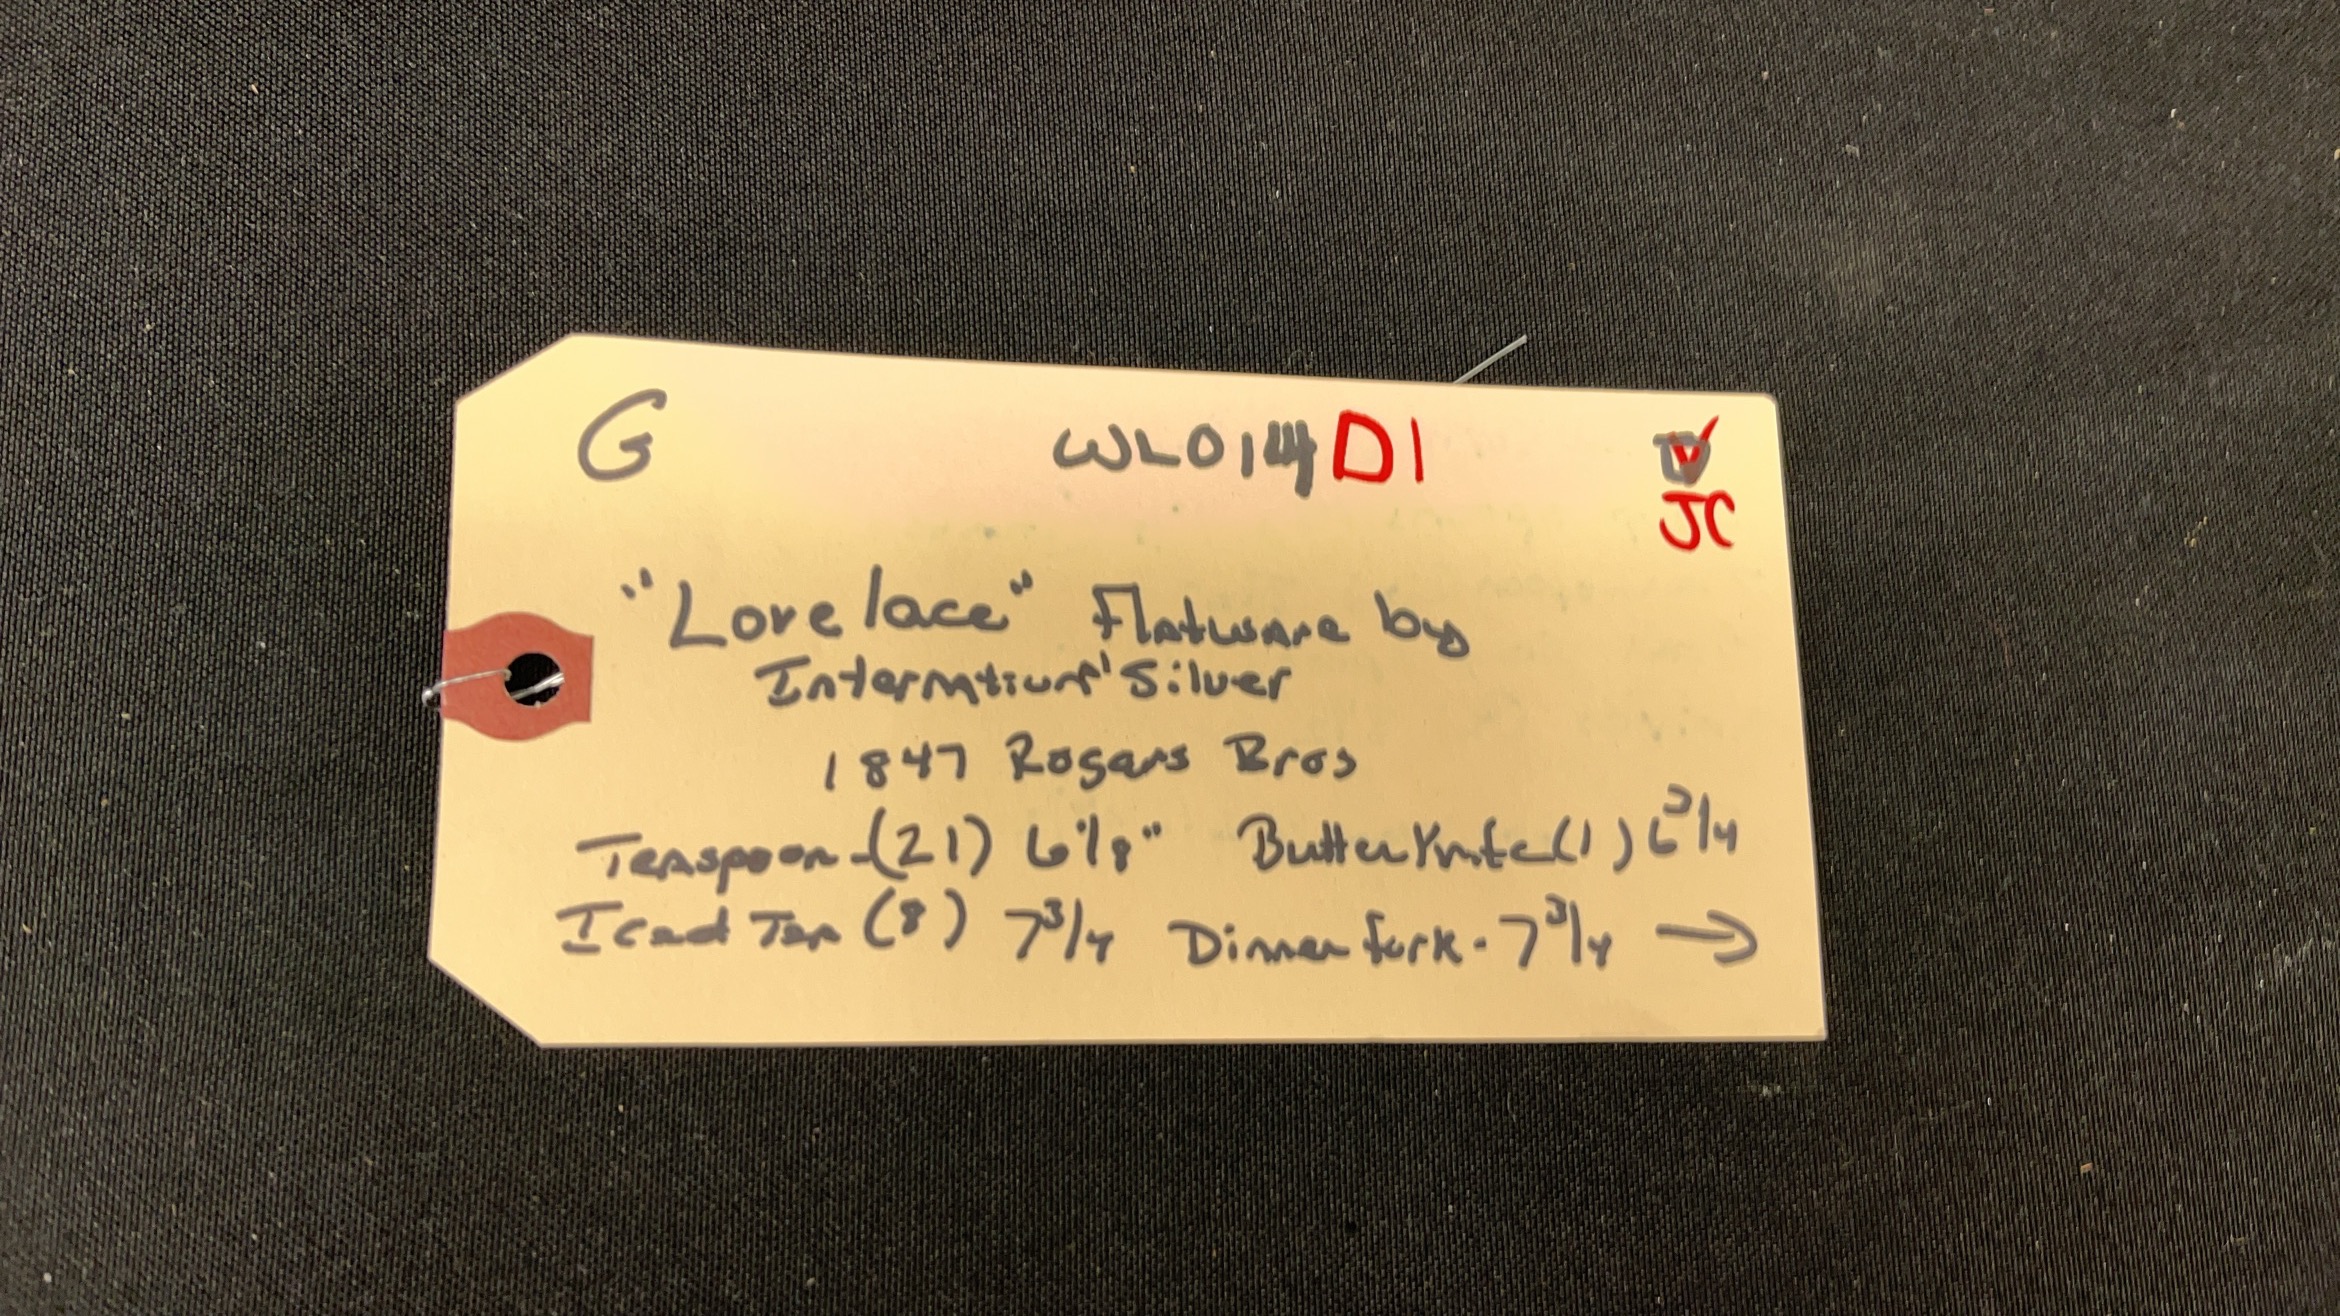 G WL014D1
JC
"Lovelace" Flatware by
Internation'l Silver
1847 Rogers Bros
Teaspoon-(21) 6 1/8" Butter Knife (1) 6 3/4
Iced Tea (8) 7 3/4 Dinner fork - 7 3/4 →